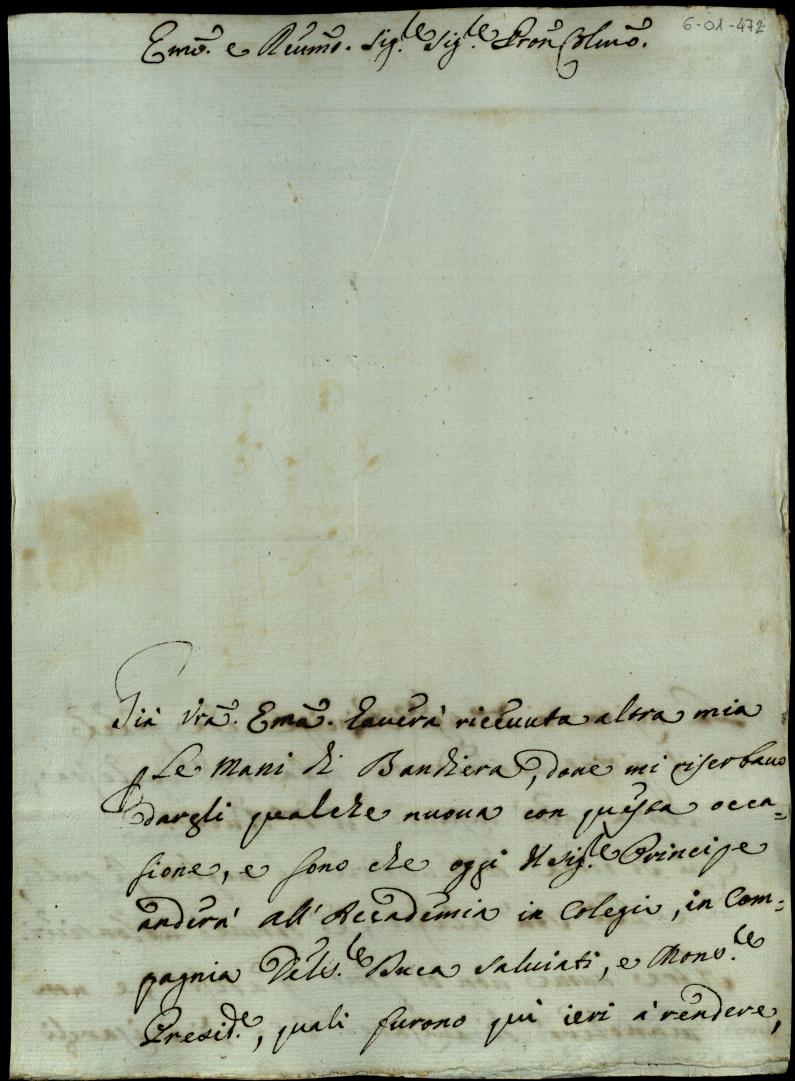 6-01-472
Emõ. e Reumõ. Sig.re Sig.re Pron Colmõ.
Già Vrã. Emã. hauerà riceuuta altra mia
p le mani di Bandiera, doue mi riserbauo
dargli qualche nuoua con questa occa=
sione, e sono che oggi il Sig.re Principe
anderà all'Accademia in Colegio, in Com=
pagnia del S.re Duca Saluiati, e Mons.re
Presid.e, quali furono qui ieri à rendere,